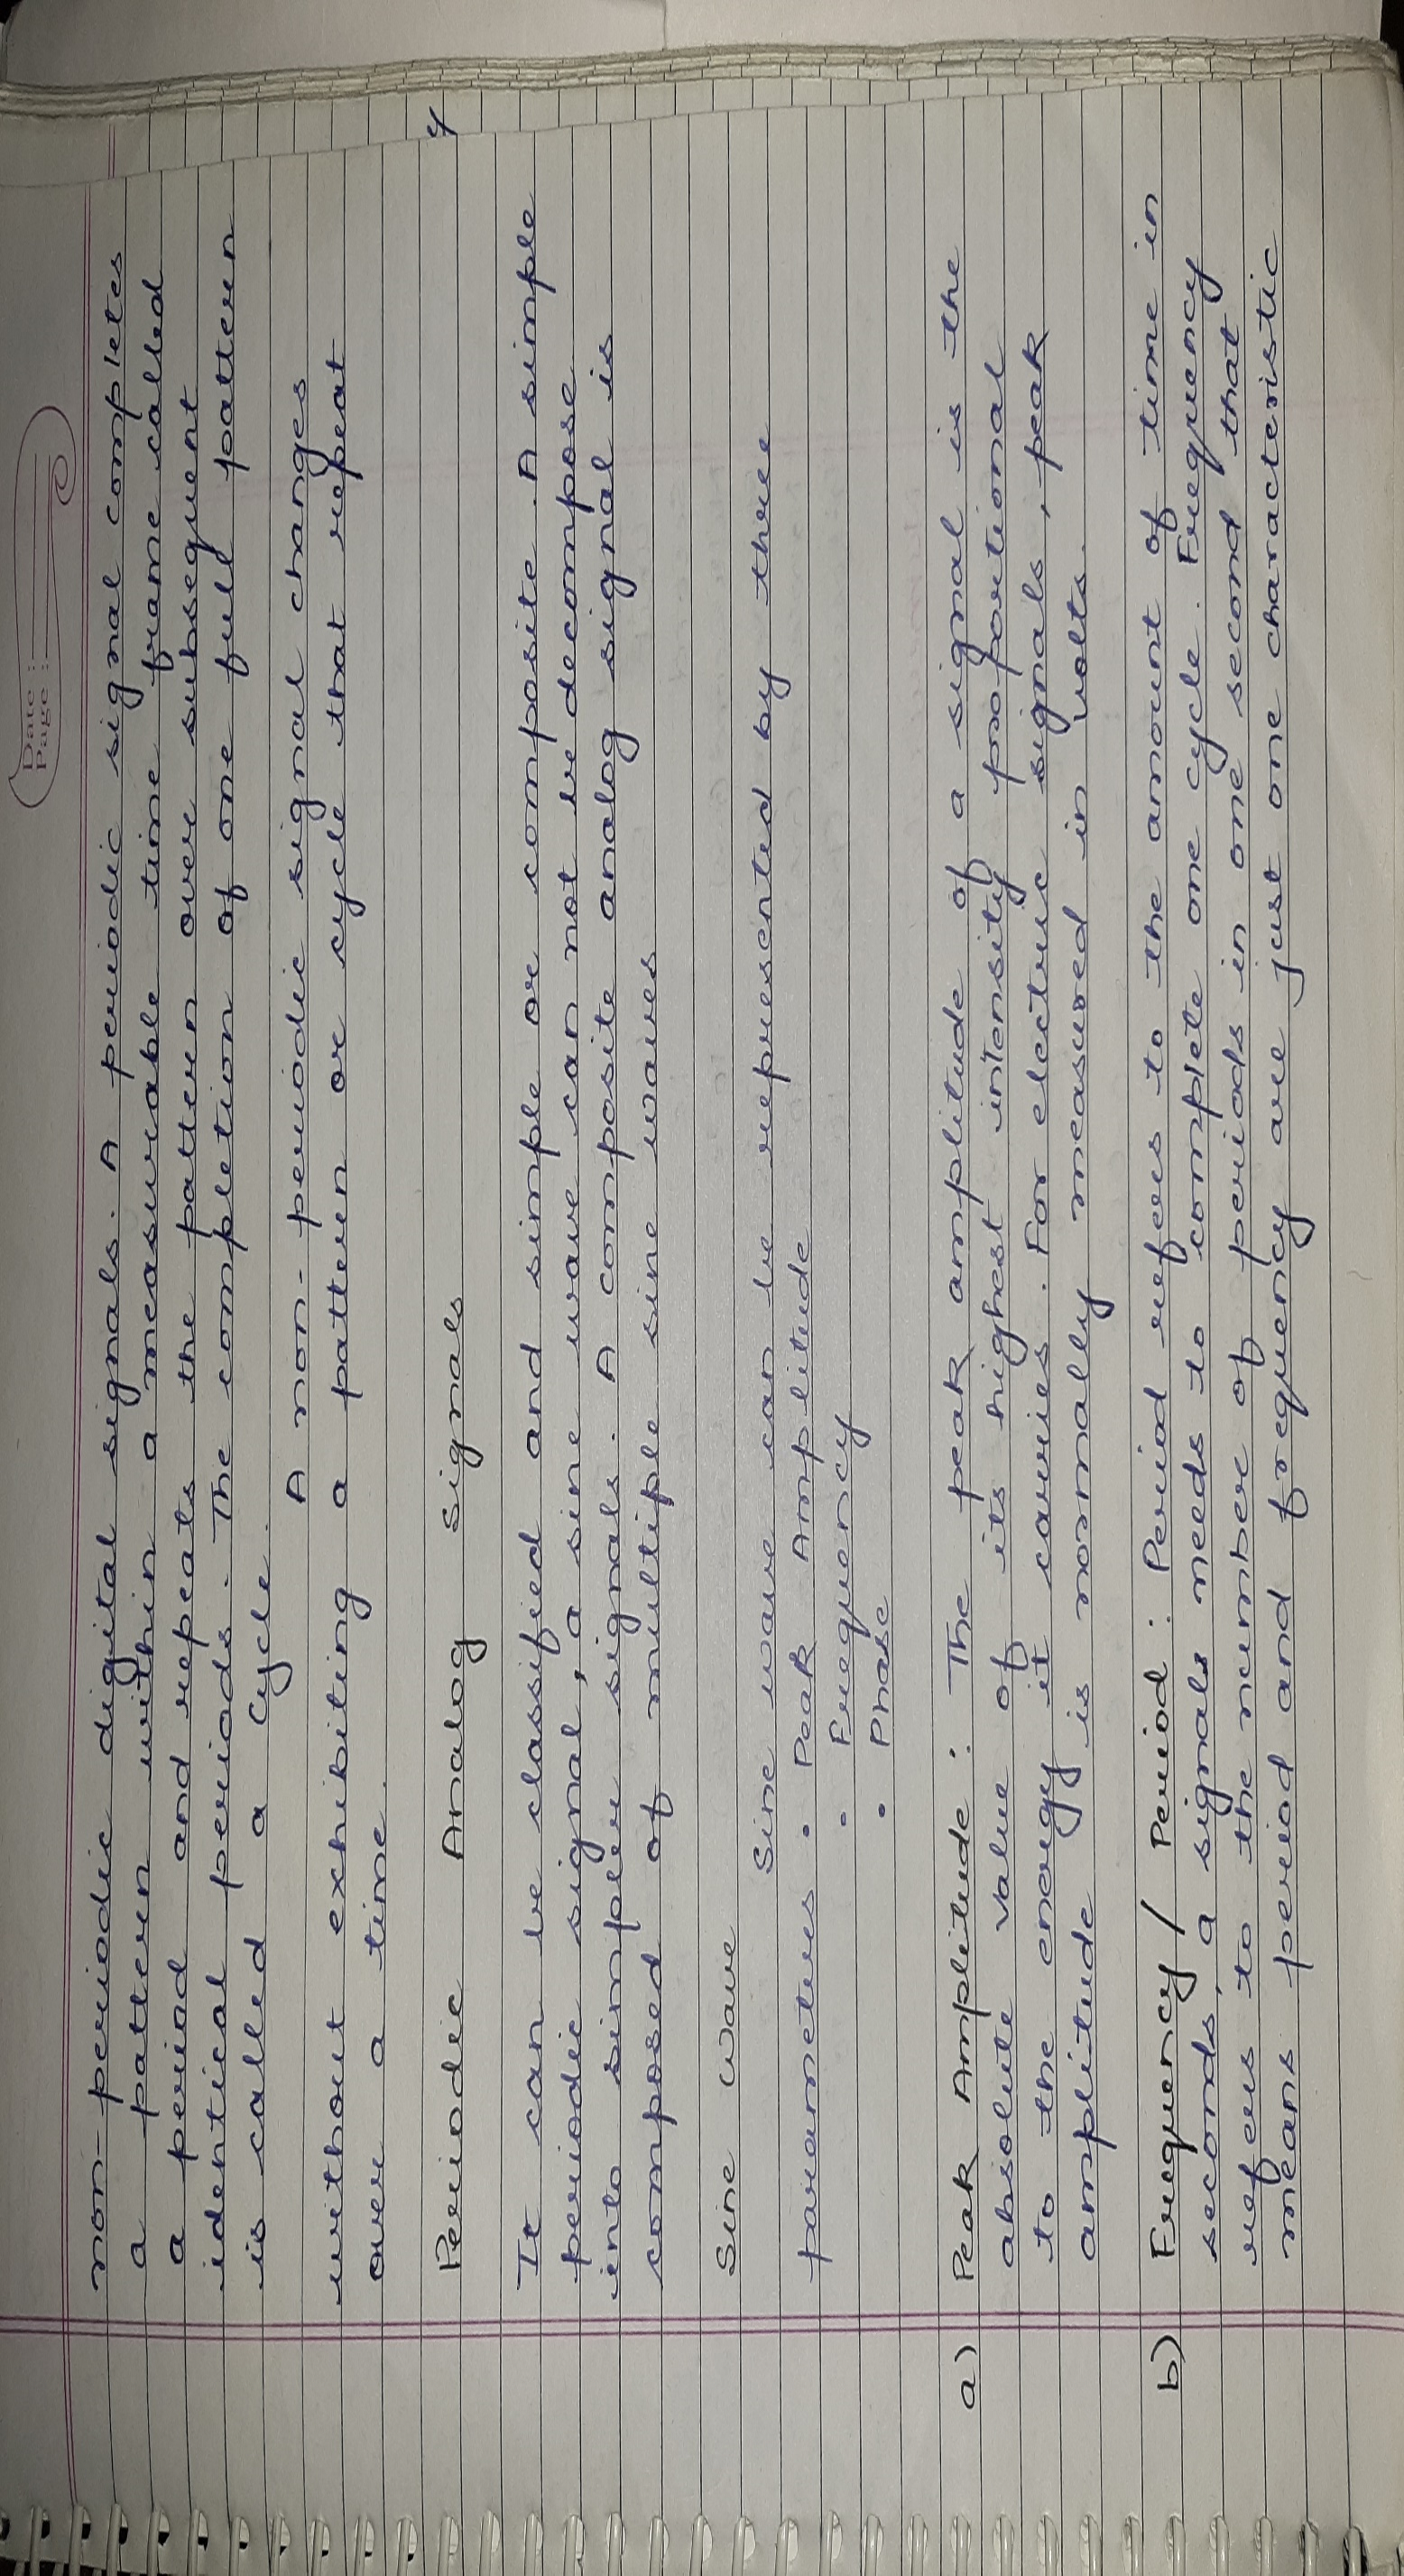 Date :
Page :
non-periodic digital signals. A periodic signal completes
a pattern within a measurable time frame called
a period and repeats the pattern over subsequent
identical periods. The completion of one full pattern
is called a cycle.
A non-periodic signal changes
without exhibiting a pattern or cycle that repeat
over a time.
Periodic Analog signals
It can be classified and simple or composite. A simple
periodic signal, a sine wave can not be decompose
into simpler signals. A composite analog signal is
composed of multiple sine waves
Sine wave
Sine wave can be represented by three
parameters • Peak Amplitude
• Frequency
• Phase
a) Peak Amplitude : The peak amplitude of a signal is the
absolute value of its highest intensity proportional
to the enorgy it carries. For electric signals, peak
amplitude is normally measured in volts.
b) Frequency / Period : Period refers to the amount of time in
seconds, a signals needs to complete one cycle. Frequency
refers to the number of periods in one second that
means period and frequency are just one characteristic